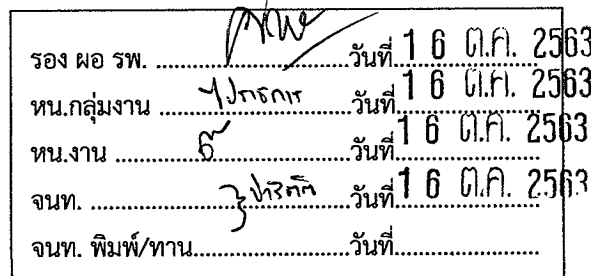 รอง ผอ รพ. ........................วันที่ 16 ต.ค. 2563
หน.กลุ่มงาน ........................วันที่ 16 ต.ค. 2563
หน.งาน ........................วันที่ 16 ต.ค. 2563
จนท. ........................วันที่ 16 ต.ค. 2563
จนท. พิมพ์/ทาน........................วันที่........................